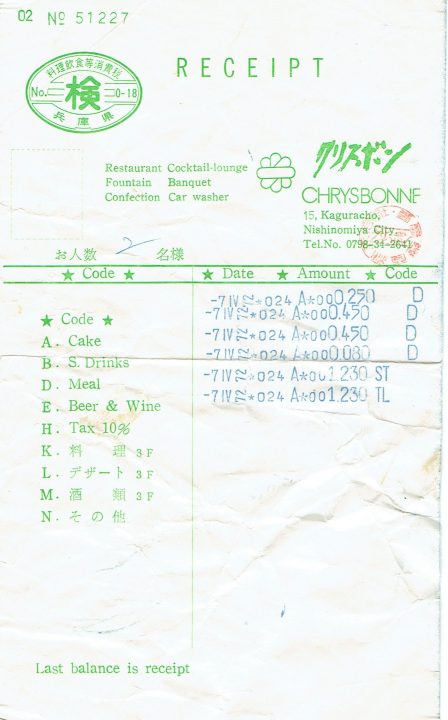 02 № 51227
料理飲食等消費税
No. 検 0-18
兵庫県
RECEIPT
クリスボン
CHRYSBONNE
Restaurant Cocktail-lounge
Fountain Banquet
Confection Car washer
15, Kaguracho,
Nishinomiya City.
Tel.No. 0798-34-2641
お人数 2 名様
★ Code ★ ★ Date ★ Amount ★ Code
-7 IV 72 *024 A*000.250 D
-7 IV 72 *024 A*000.450 D
-7 IV 72 *024 A*000.450 D
-7 IV 72 *024 A*000.080 D
-7 IV 72 *024 A*001.230 ST
-7 IV 72 *024 A*001.230 TL
★ Code ★
A. Cake
B. S. Drinks
D. Meal
E. Beer & Wine
H. Tax 10%
K. 料理 3F
L. デザート 3F
M. 酒類 3F
N. その他
Last balance is receipt